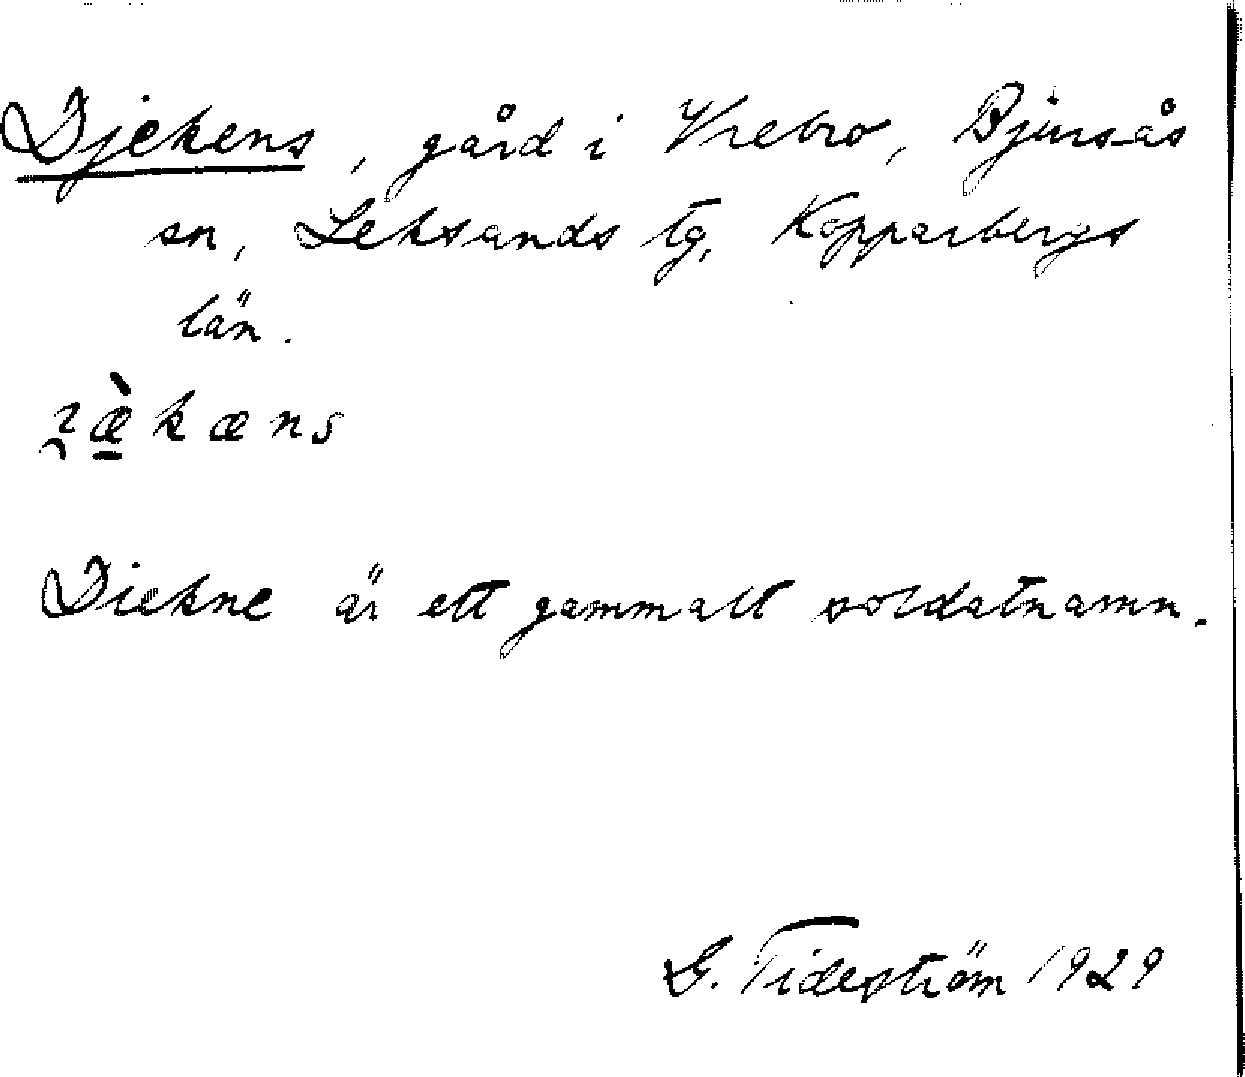 Djekens, gård i Vrebro, Bjursås
sn, Leksands tg, Kopparbergs
län.
kæns
Diekne är ett gammalt soldatnamn.
G. Tideström 1929